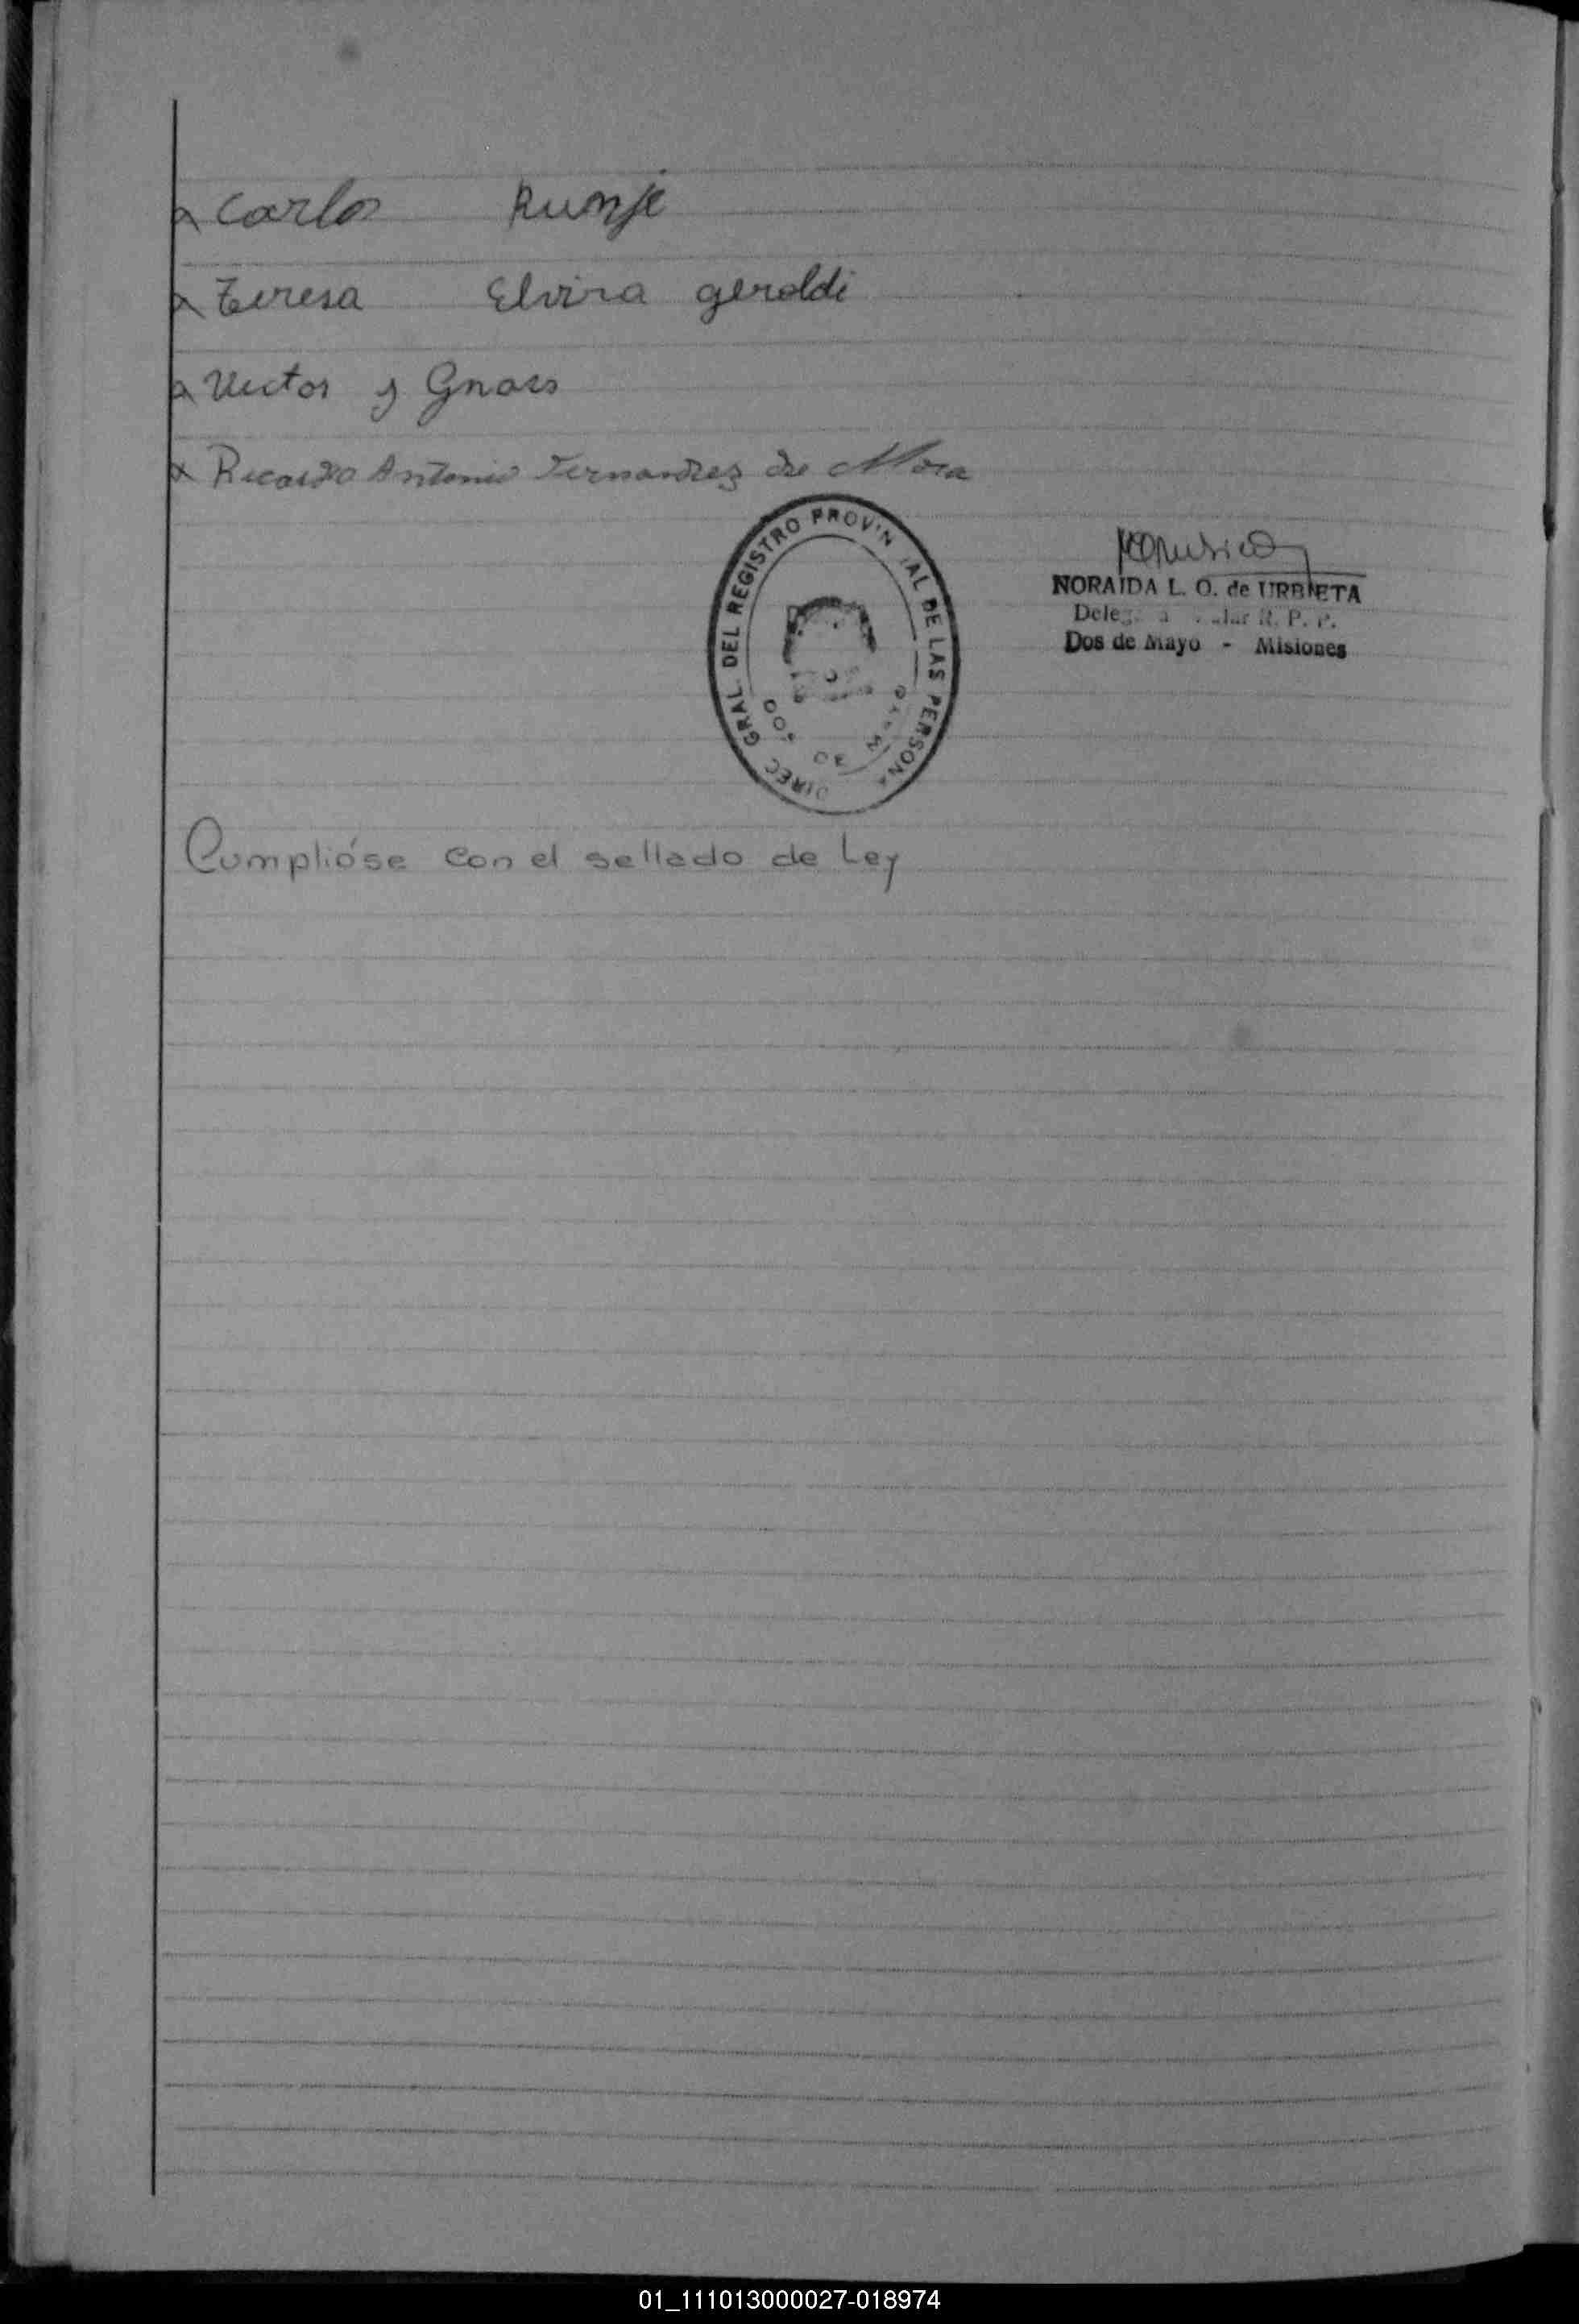 x Carlos Runje
x Teresa Elvira geroldi
x Victor J Gnass
x Ricardo Antonio Fernandez de Mora
DIREC GRAL. DEL REGISTRO PROVIN IAL DE LAS PERSONA
NORAIDA L. O. de URBIETA
R. P. P.
Dos de Mayo - Misiones
Cumplióse con el sellado de Ley
01_111013000027-018974